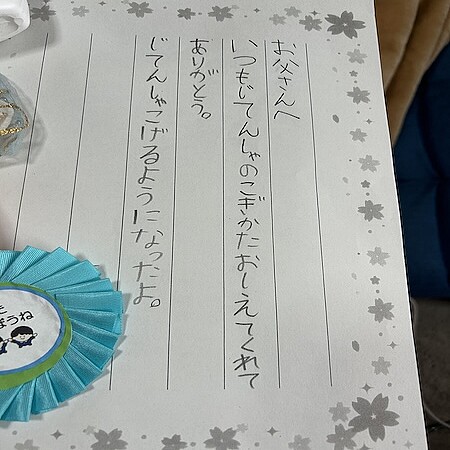 お父さんへ
いつもじてんしゃのこぎかたおしえてくれて
ありがとう。
じてんしゃこげるようになったよ。